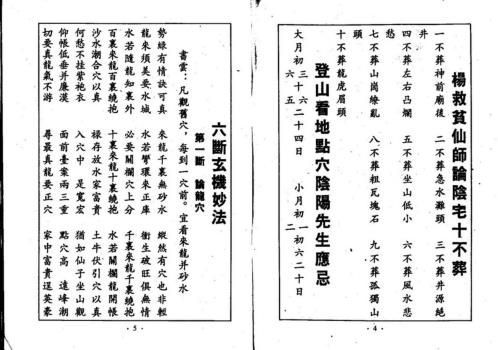 楊救貧仙師論陰宅十不葬
一不葬神前廟後 二不葬急水灘頭 三不葬井源絕
井
四不葬左右凸爛 五不葬坐山低小 六不葬風水悲
愁
七不葬山崗繚亂 八不葬粗瓦塊石 九不葬孤獨山
十不葬龍虎眉頭
登山看地點穴陰陽先生應忌
大月初三 六 十五 二十四日 小月初一 初六 二十日
·4·
六斷玄機妙法
第一斷 論龍穴
書雲：凡觀舊穴，每到一穴前。宜看來龍并砂水
勢線有情訣可真 來斷千裏無砂水 縱然有穴也非輕
龍來須美要水城 水若彎環來正庫 衝生破旺俱無情
水若隨龍知裏外 必要關欄穴上分 千裏來龍千裏繞抱
百裏來龍百裏繞抱 十裏來龍十裏繞抱 水若關欄龍開帳
沙水潮合穴以真 祿存放水家富貴 土牛伏引穴以真
何愁不挂紫袍衣 入穴中 是寬宏 猶如仙子坐山觀
仰帳低垂并廉漢 面前臺案兩三重 點穴高 遠峰潮
切要真龍氣不游 尋最真龍要正穴 家中富貴逞英豪
·5·